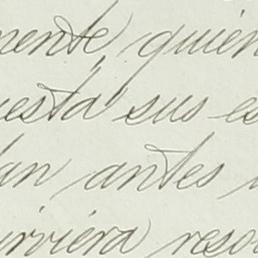 mente, quien
uesta sus es
dan antes
urriera reso